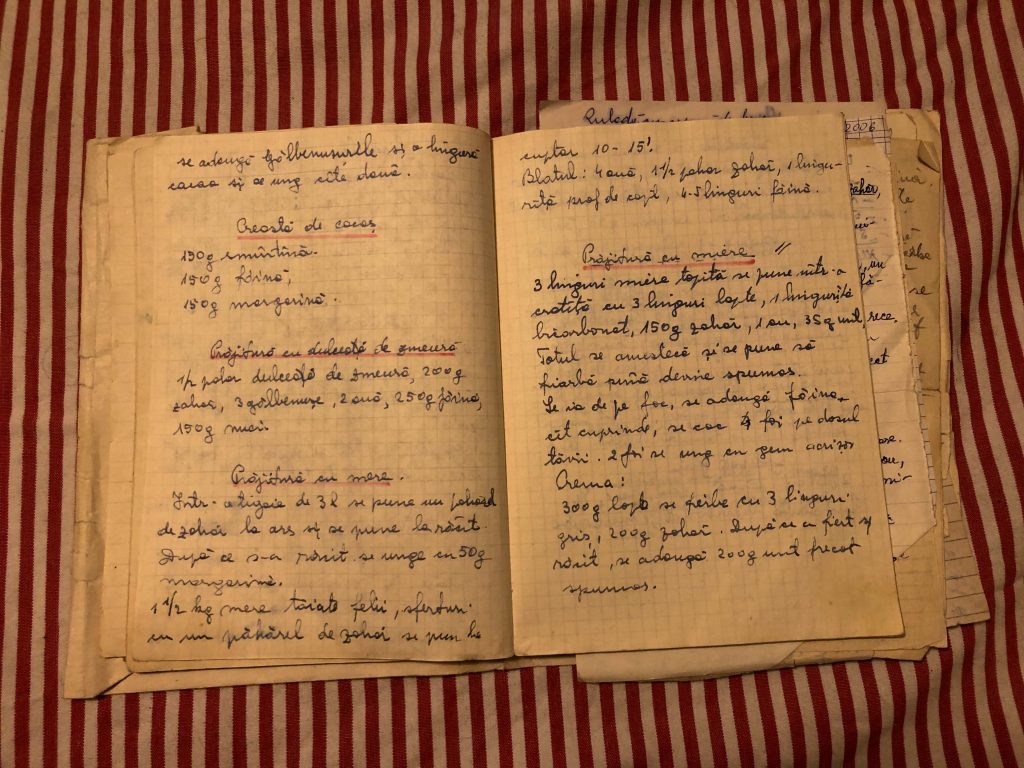 se adaugă gălbenusurile și o lingură
cacao și se ung cîte două.
Creastă de cocoș
150g smîntînă.
150g făină,
150g margarină.
Prăjitură cu dulceață de zmeură
1/2 pahar dulceață de zmeură, 200g
zahăr, 3 gălbenușe, 2 ouă, 250g făină,
150g nuci.
Prăjitură cu mere.
Într-o tigaie de 3l se pune un păhărel
de zahăr la ars și se pune la răcit.
După ce s-a răcit se unge cu 50g
margarină.
1 1/2 kg mere tăiate felii, sferturi
cu un păhărel de zahăr se pun la
cuptor 10-15'.
Blatul: 4 ouă, 1 1/2 pahar zahăr, 1 lingu-
riță praf de copt, 4-5 linguri făină.
Prăjitură cu miere //
3 linguri miere topită se pune într-o
cratiță cu 3 linguri lapte, 1 linguriță
bicarbonat, 150g zahăr, 1 ou, 35g unt, rece.
Totul se amestecă și se pune să
fiarbă pînă devine spumos.
Se ia de pe foc, se adaugă făina,
cît cuprinde, se coc 4 foi pe dosul
tăvii. 2 foi se ung cu gem acrișor
Crema:
300g lapte se fierbe cu 3 linguri
griș, 200g zahăr. După ce a fiert și
răcit, se adaugă 200g unt frecat
spumos.
2006